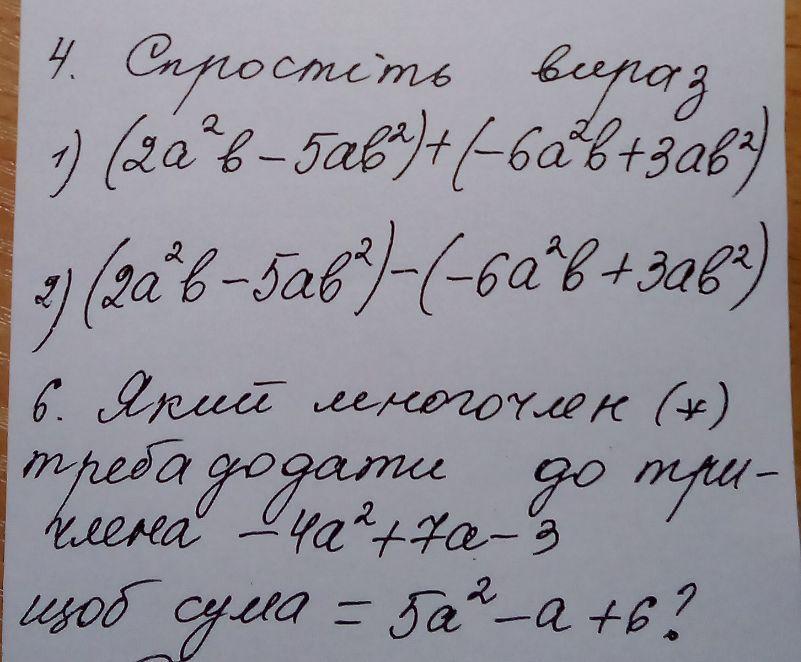 4. Спростіть вираз
1) (2a²b – 5ab²) + (–6a²b + 3ab²)
2) (2a²b – 5ab²) – (–6a²b + 3ab²)
6. Який многочлен (*)
треба додати до три-
члена –4a² + 7a – 3
щоб сума = 5a² – a + 6?